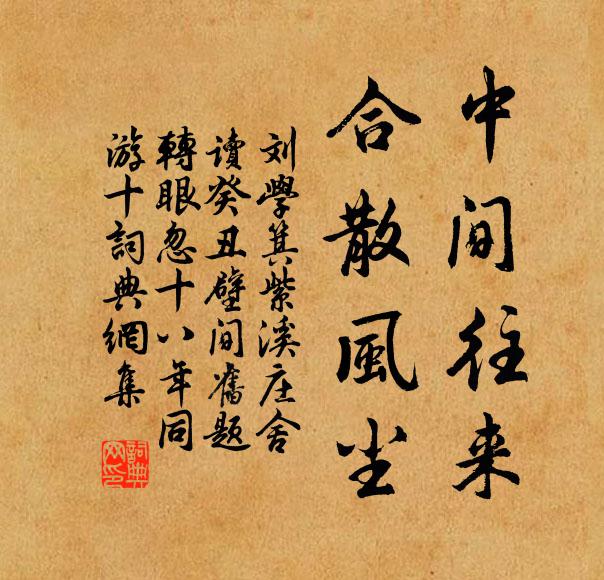 中间往来
合散風尘
刘學箕紫溪庄舍
讀癸丑壁间舊题
轉眼忽十八年同
游十詞典網集
詞典网印